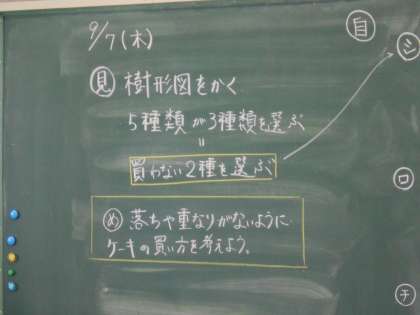 9/7(木)
自
シ
見 樹形図をかく
5種類から3種類を選ぶ
=
買わない2種を選ぶ
ロ
め 落ちや重なりがないように
ケーキの買い方を考えよう。
チ